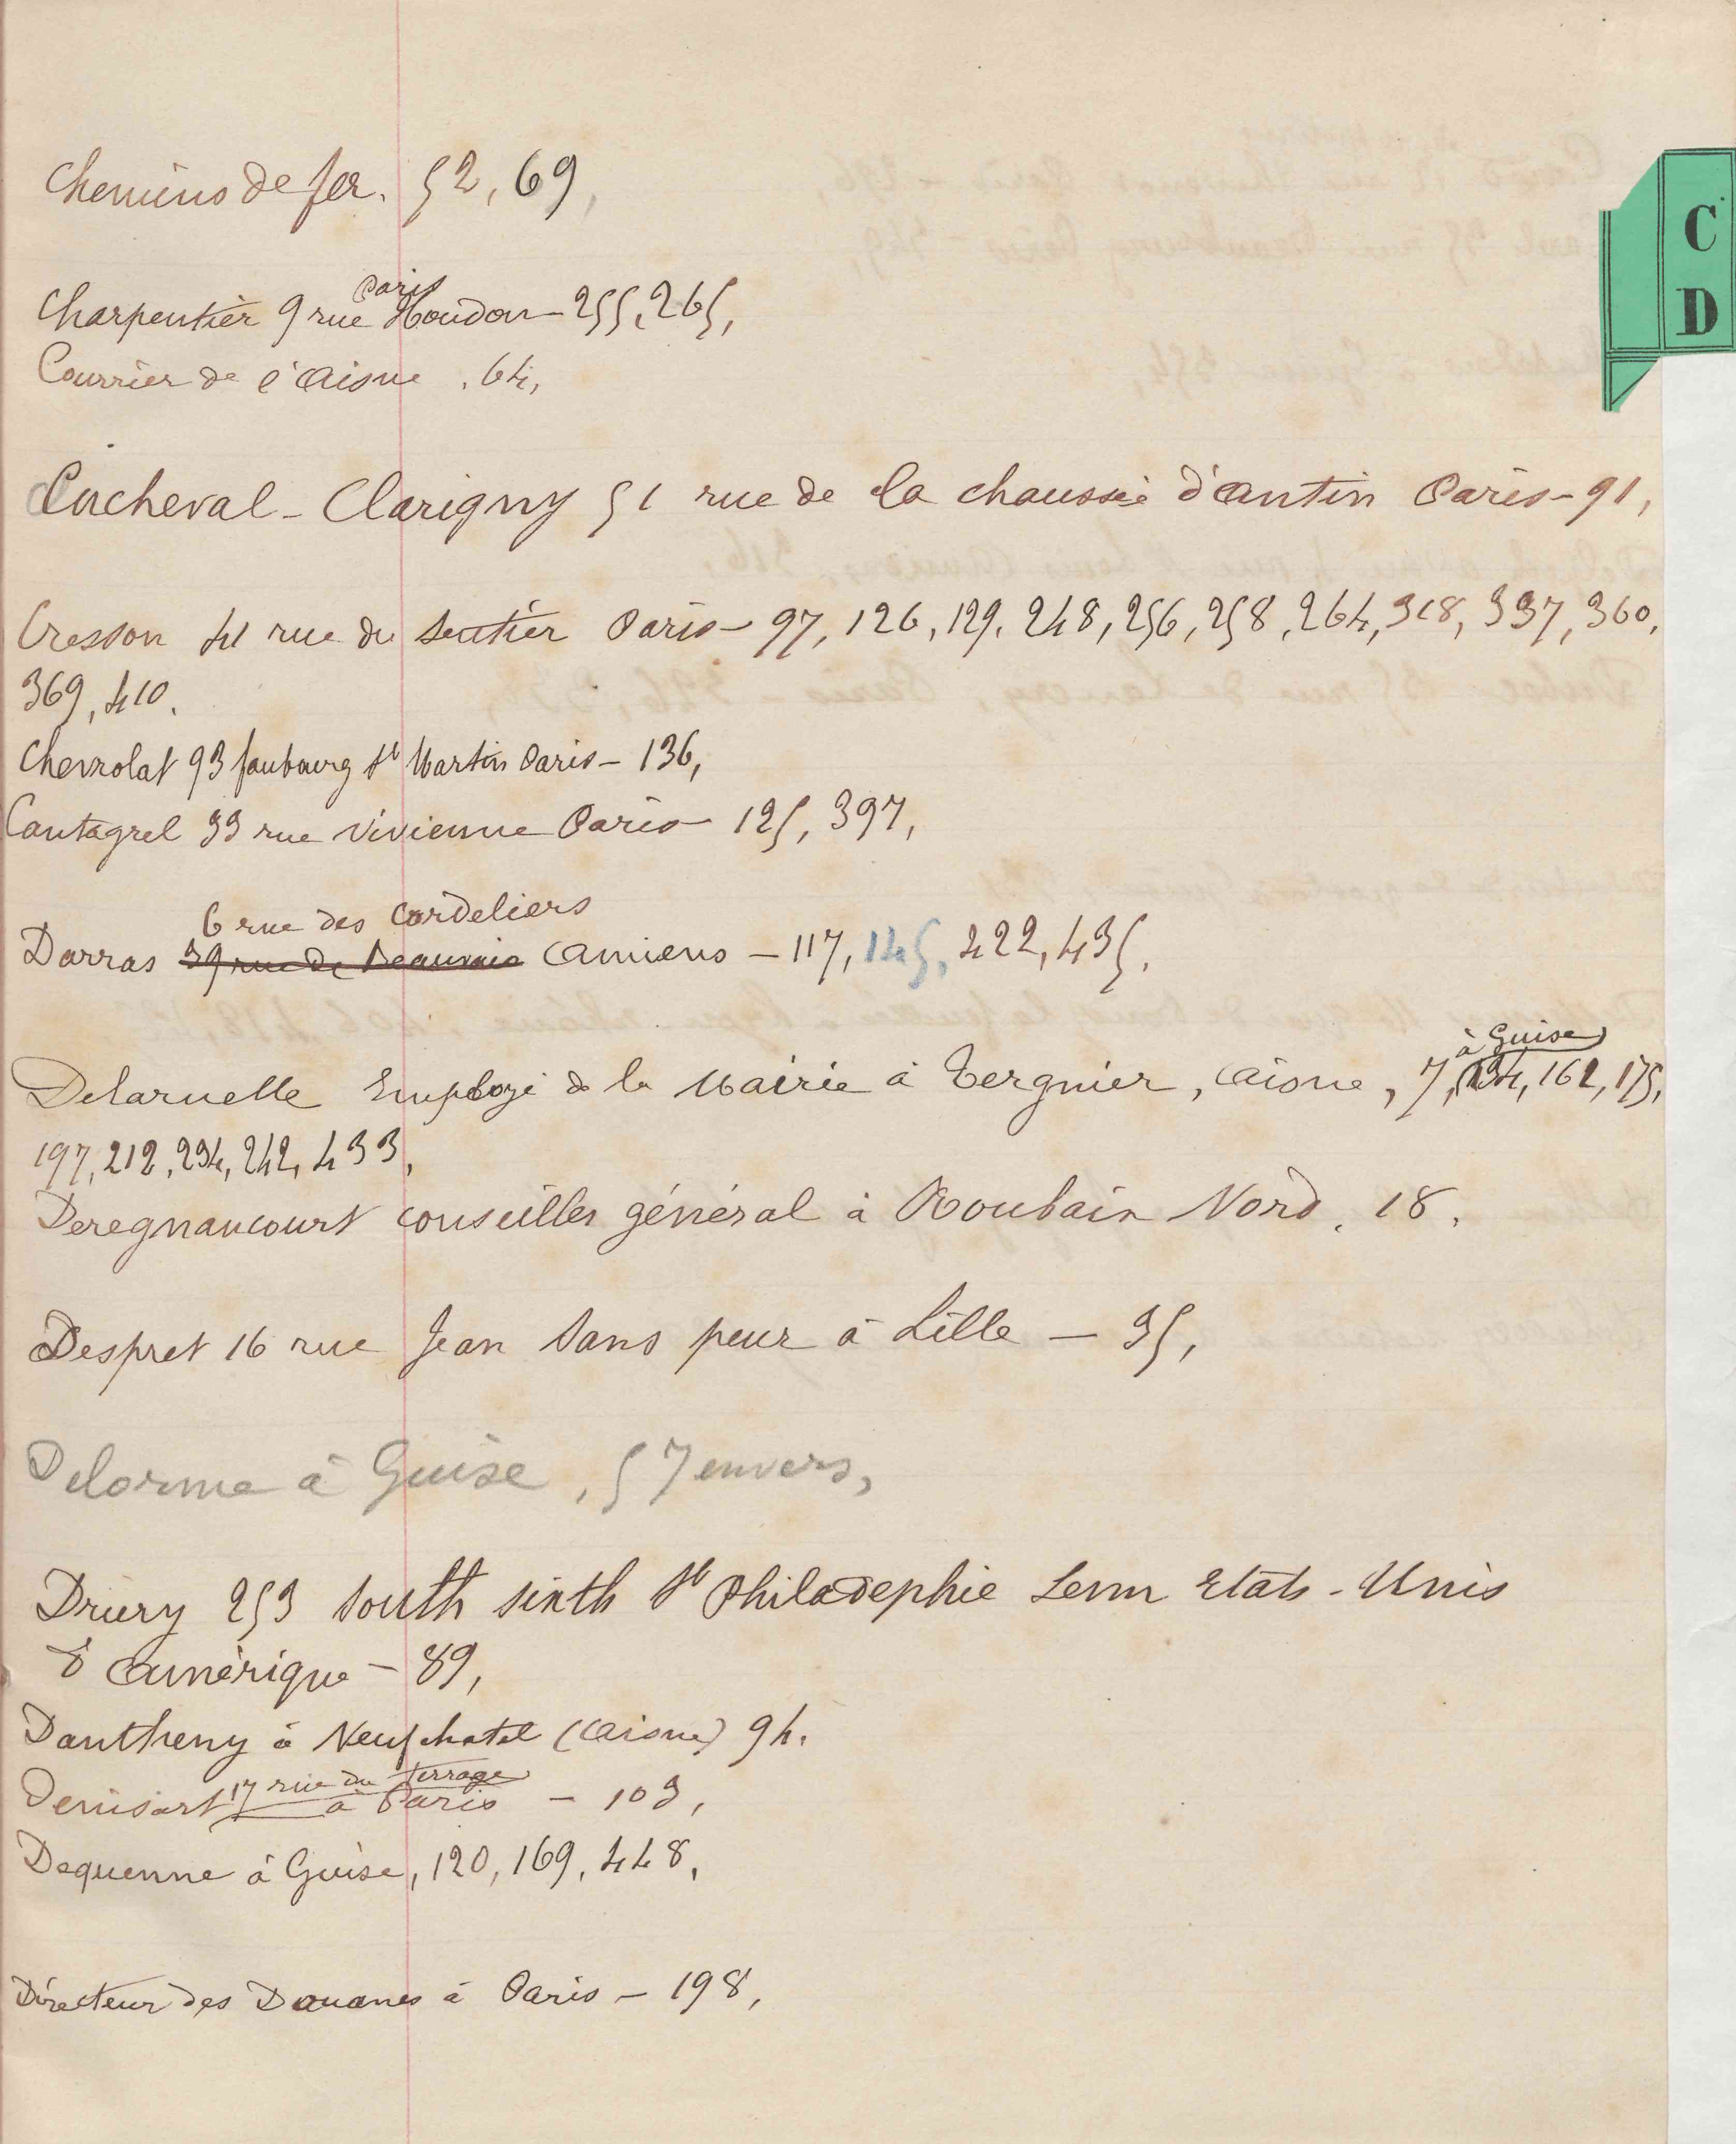 C
D
Chemins de fer. 52, 69,
Paris
Charpentier 9 rue Houdon - 255, 265,
Courrier de l'Aisne . 64,
Cucheval - Clarigny 51 rue de la chaussée d'Antin Paris - 91,
Cresson 41 rue du Sentier Paris - 97, 126, 129, 248, 256, 258, 264, 318, 337, 360,
369, 410.
Chevrolat 93 faubourg St Martin Paris - 136,
Cantagrel 33 rue Vivienne Paris - 125, 397,
6 rue des Cordeliers
Darras 39 rue de Beauvais Amiens - 117, 145, 422, 435,
à Guise
Delaruelle Employé de la Mairie à Tergnier, Aisne, 7, 134, 162, 175,
197, 212, 234, 242, 433,
Deregnaucourt conseiller général à Roubaix Nord. 18,
Despret 16 rue Jean Sans peur à Lille - 35,
Delorme à Guise, 57 envers,
Drury 253 South sixth St Philadephie Etats-Unis
d'Amérique - 89,
Dantheny à Neufchatel (Aisne) 94.
17 rue du Terrage
Denisart à Paris - 103,
Dequenne à Guise, 120, 169, 448,
Directeur des Douanes à Paris - 198,